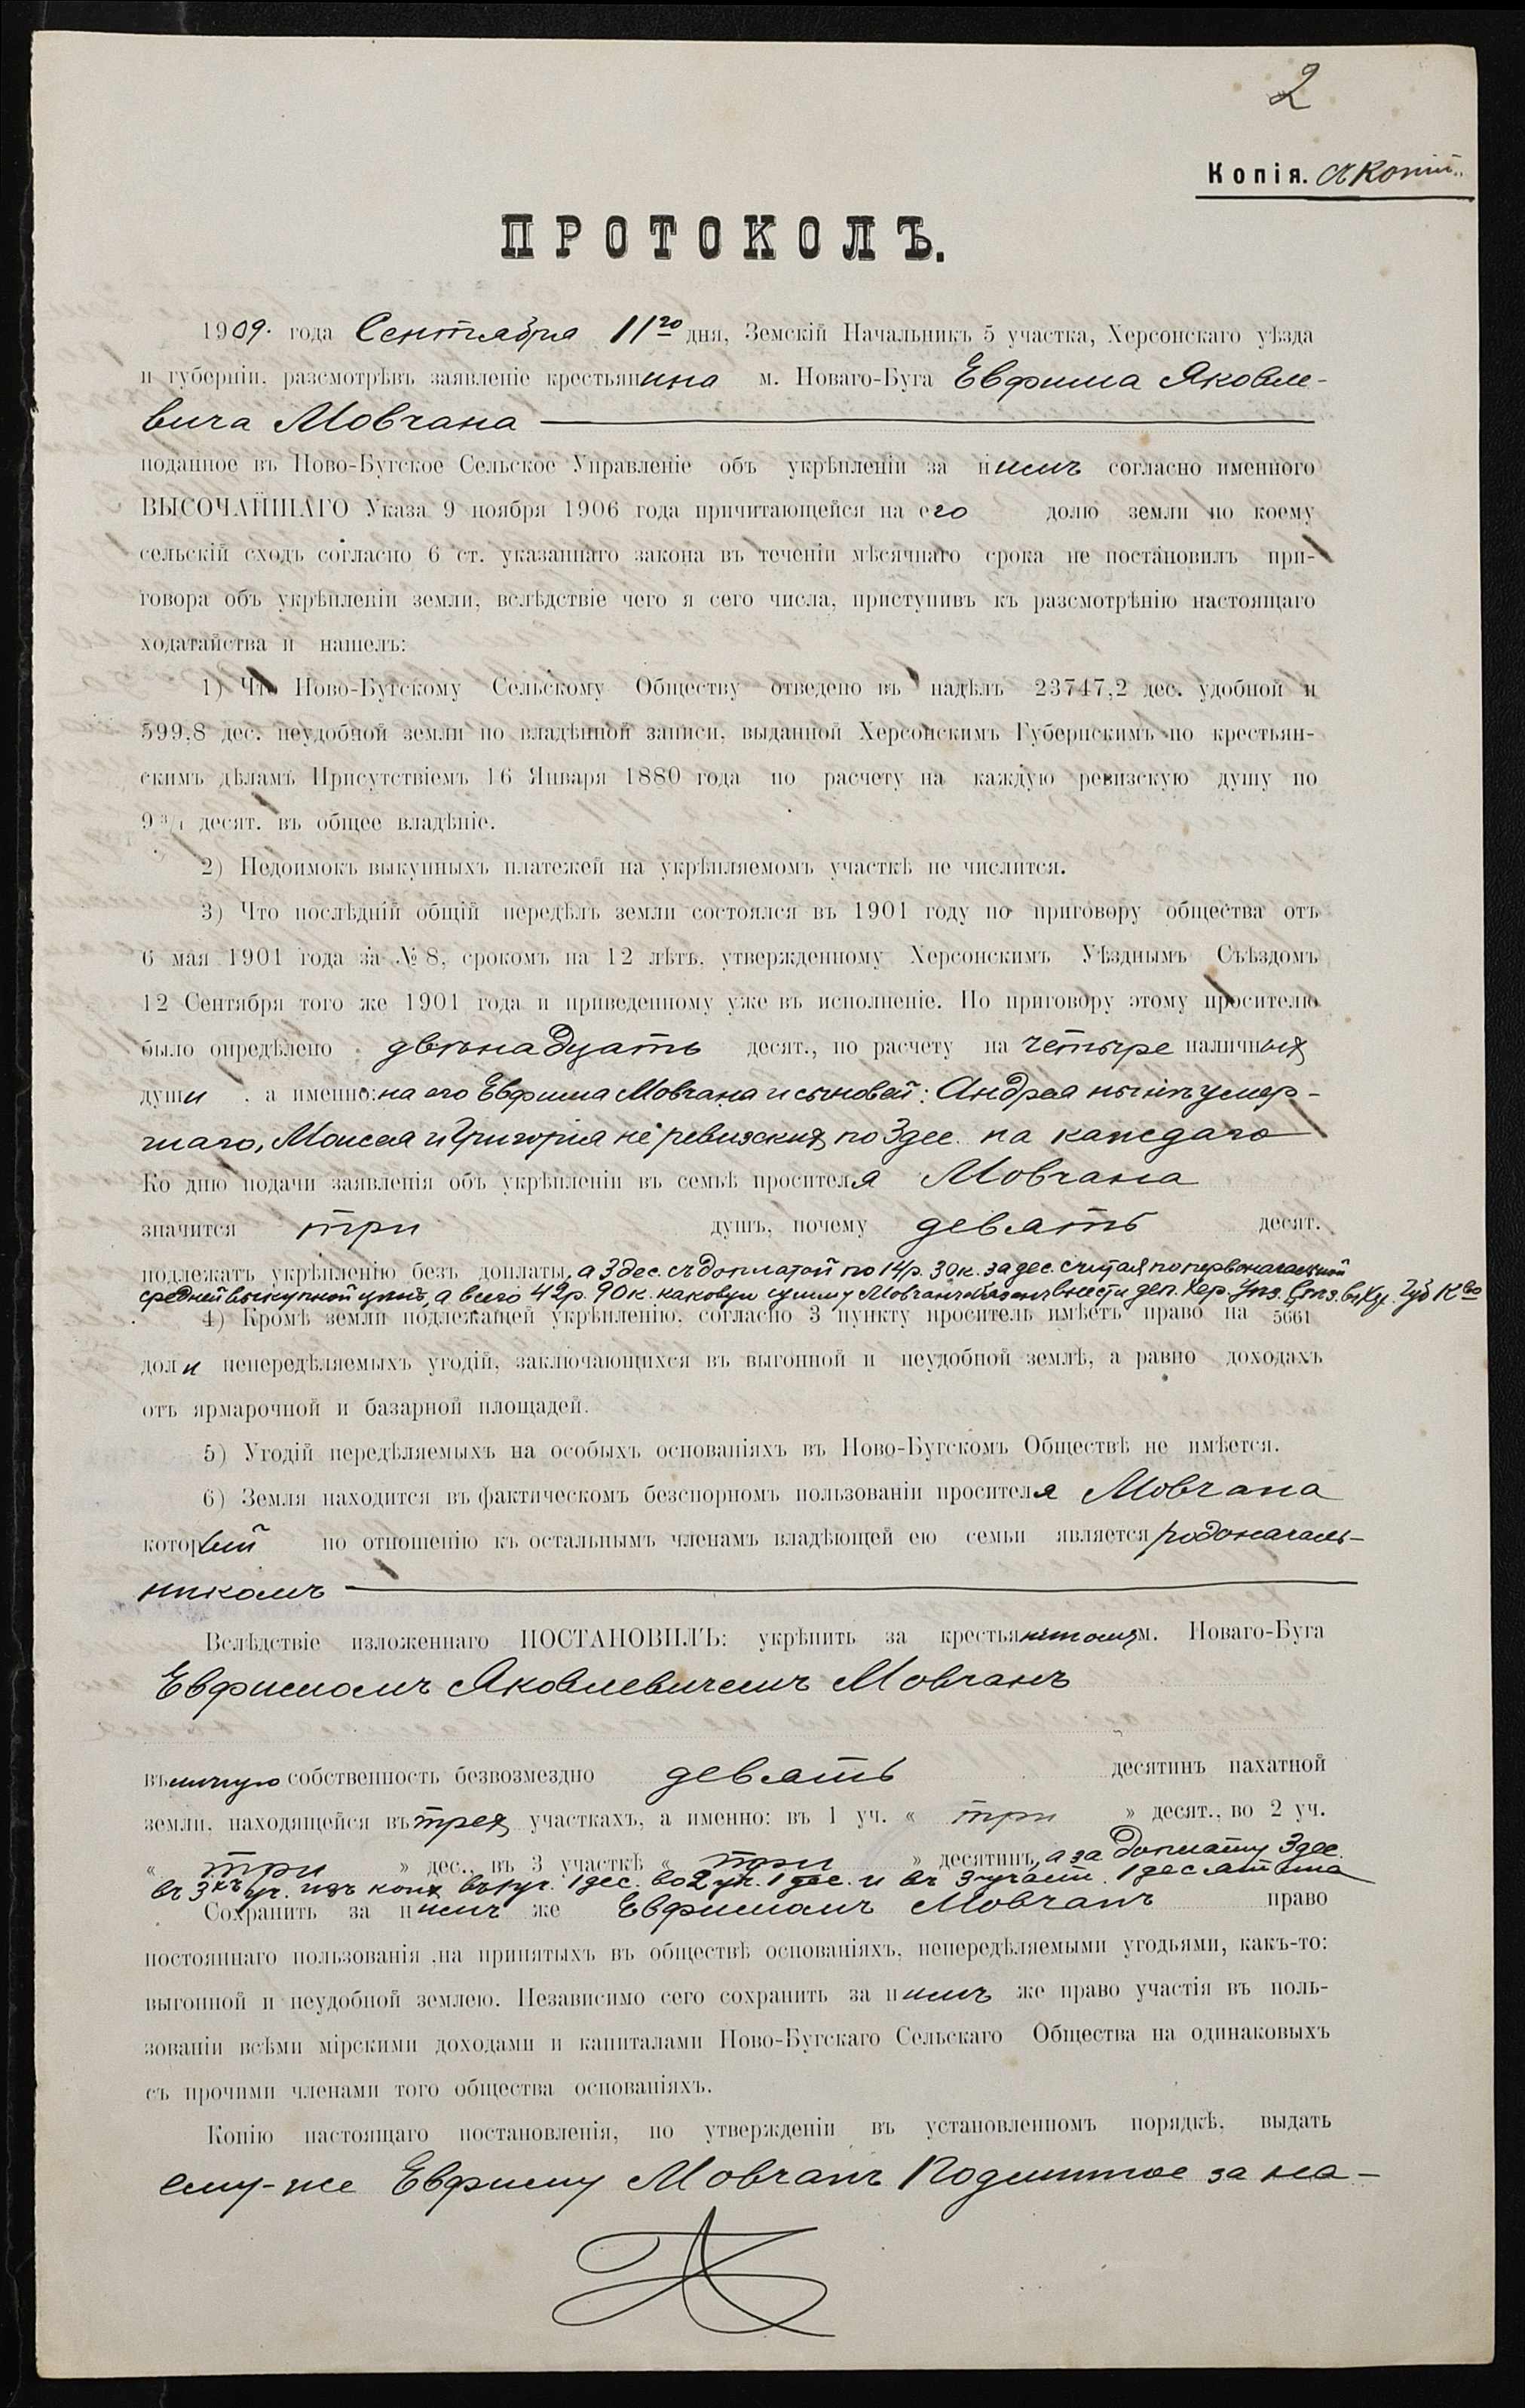 2
Копія. съ копіи
ПРОТОКОЛЪ.
1909. года Сентября 11го дня, Земскій Начальникъ 5 участка, Херсонскаго уѣзда
и губерніи, разсмотрѣвъ заявленіе крестьянина м. Новаго-Буга Евфима Яковле-
вича Мовчана
поданное въ Ново-Бугское Сельское Управленіе объ укрѣпленіи за нимъ согласно именного
ВЫСОЧАЙШАГО Указа 9 ноября 1906 года причитающейся на его долю земли по коему
сельскій сходъ согласно 6 ст. указаннаго закона въ теченіи мѣсячнаго срока не постановилъ при-
говора объ укрѣпленіи земли, вслѣдствіе чего я сего числа, приступивъ къ разсмотрѣнію настоящаго
ходатайства и нашелъ:
1) Что Ново-Бугскому Сельскому Обществу отведено въ надѣлъ 23747,2 дес. удобной и
599,8 дес. неудобной земли по владѣнной записи, выданной Херсонскимъ Губернскимъ по крестьян-
скимъ дѣламъ Присутствіемъ 16 Января 1880 года по расчету на каждую ревизскую душу по
9 3/4 десят. въ общее владѣніе.
2) Недоимокъ выкупныхъ платежей на укрѣпляемомъ участкѣ не числится.
3) Что послѣдній общій передѣлъ земли состоялся въ 1901 году по приговору общества отъ
6 мая 1901 года за № 8, срокомъ на 12 лѣтъ, утвержденному Херсонскимъ Уѣзднымъ Съѣздомъ
12 Сентября того же 1901 года и приведенному уже въ исполненіе. По приговору этому просителю
было опредѣлено двѣнадцать десят., по расчету на четыре наличныхъ
души а именно: на его Евфима Мовчана и сыновей: Андрея нынѣ умер-
шаго, Моисея и Григорія не ревизскихъ по 3 дес. на каждаго
Ко дню подачи заявленія объ укрѣпленіи въ семьѣ просителя Мовчана
значится три душъ, почему девять десят.
подлежатъ укрѣпленію безъ доплаты, а 3 дес. съ доплатой по 14 р. 30 к. за дес. считая по первоначальной
средней выкупной цѣнѣ, а всего 42 р. 90 к. каковую сумму Мовчанъ обязанъ внести деп. Хер. Уѣз. Съѣз. въ Хер. Губ К-во
4) Кромѣ земли подлежащей укрѣпленію, согласно 3 пункту проситель имѣетъ право на 5661
доли непередѣляемыхъ угодій, заключающихся въ выгонной и неудобной землѣ, а равно доходахъ
отъ ярмарочной и базарной площадей.
5) Угодій передѣляемыхъ на особыхъ основаніяхъ въ Ново-Бугскомъ Обществѣ не имѣется.
6) Земля находится въ фактическомъ безспорномъ пользованіи просителя Мовчана
который по отношенію къ остальнымъ членамъ владѣющей ею семьи является родоначаль-
никомъ
Вслѣдствіе изложеннаго ПОСТАНОВИЛЪ: укрѣпить за крестьяниномъ м. Новаго-Буга
Евфимомъ Яковлевичемъ Мовчанъ
въ личную собственность безвозмездно девять десятинъ пахатной
земли, находящейся въ трехъ участкахъ, а именно: въ 1 уч. « три » десят., во 2 уч.
« три » дес., въ 3 участкѣ « три » десятинъ, а за доплату 3 дес.
въ 3хъ уч. изъ коихъ въ 1 уч. 1 дес. во 2 уч. 1 дес. и въ 3 участ. 1 десятина
Сохранить за нимъ же Евфимомъ Мовчанъ право
постояннаго пользованія ,на принятыхъ въ обществѣ основаніяхъ, непередѣляемыми угодьями, какъ-то:
выгонной и неудобной землею. Независимо сего сохранить за нимъ же право участія въ поль-
зованіи всѣми мірскими доходами и капиталами Ново-Бугскаго Сельскаго Общества на одинаковыхъ
съ прочими членами того общества основаніяхъ.
Копію настоящаго постановленія, по утвержденіи въ установленномъ порядкѣ, выдать
ему-же Евфиму Мовчанъ Подлинное за на-